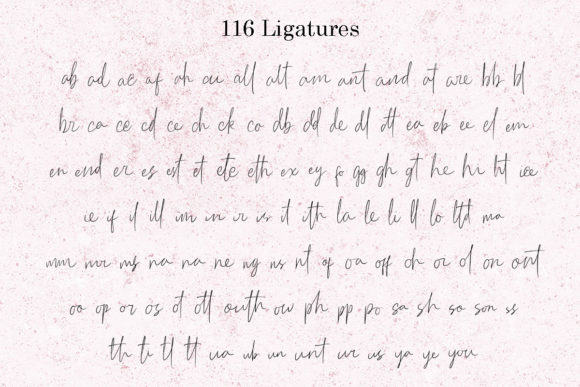 116 Ligatures
ab ad ae af ah au all alt am ant and at are bb bl
br ca ce cd ce ch ck co db dd de dl dt ea eb ee el em
en end er es est et ete eth ex ey fo gg gh gt he hi ht iee
ie if il ill im in ir is it ith la le li ll lo ltd ma
mm mr ms na na ne ng ns nt of oa off oh or ol on ont
oo op or os ot ott outh ow ph pp po sa sh so son ss
th ti tl tt ua ub un unt ur us ya ye you